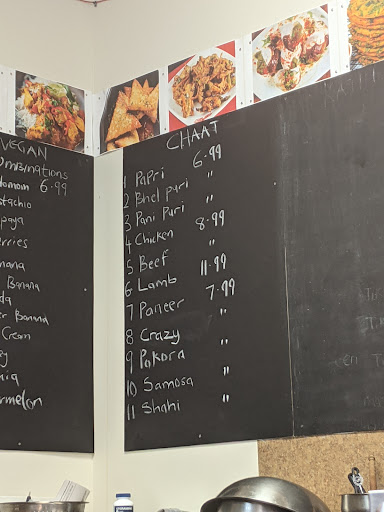 VEGAN
mbinations
6.99
stachio
paya
erries
nana
Banana
da
er Banana
Cream
rmelon
CHAAT
1 Papri 6.99
2 Bhel puri "
3 Pani Puri "
4 Chicken 8.99
5 Beef "
6 Lamb 11.99
7 Paneer 7.99
8 Crazy "
9 Pakora "
10 Samosa "
11 Shahi "